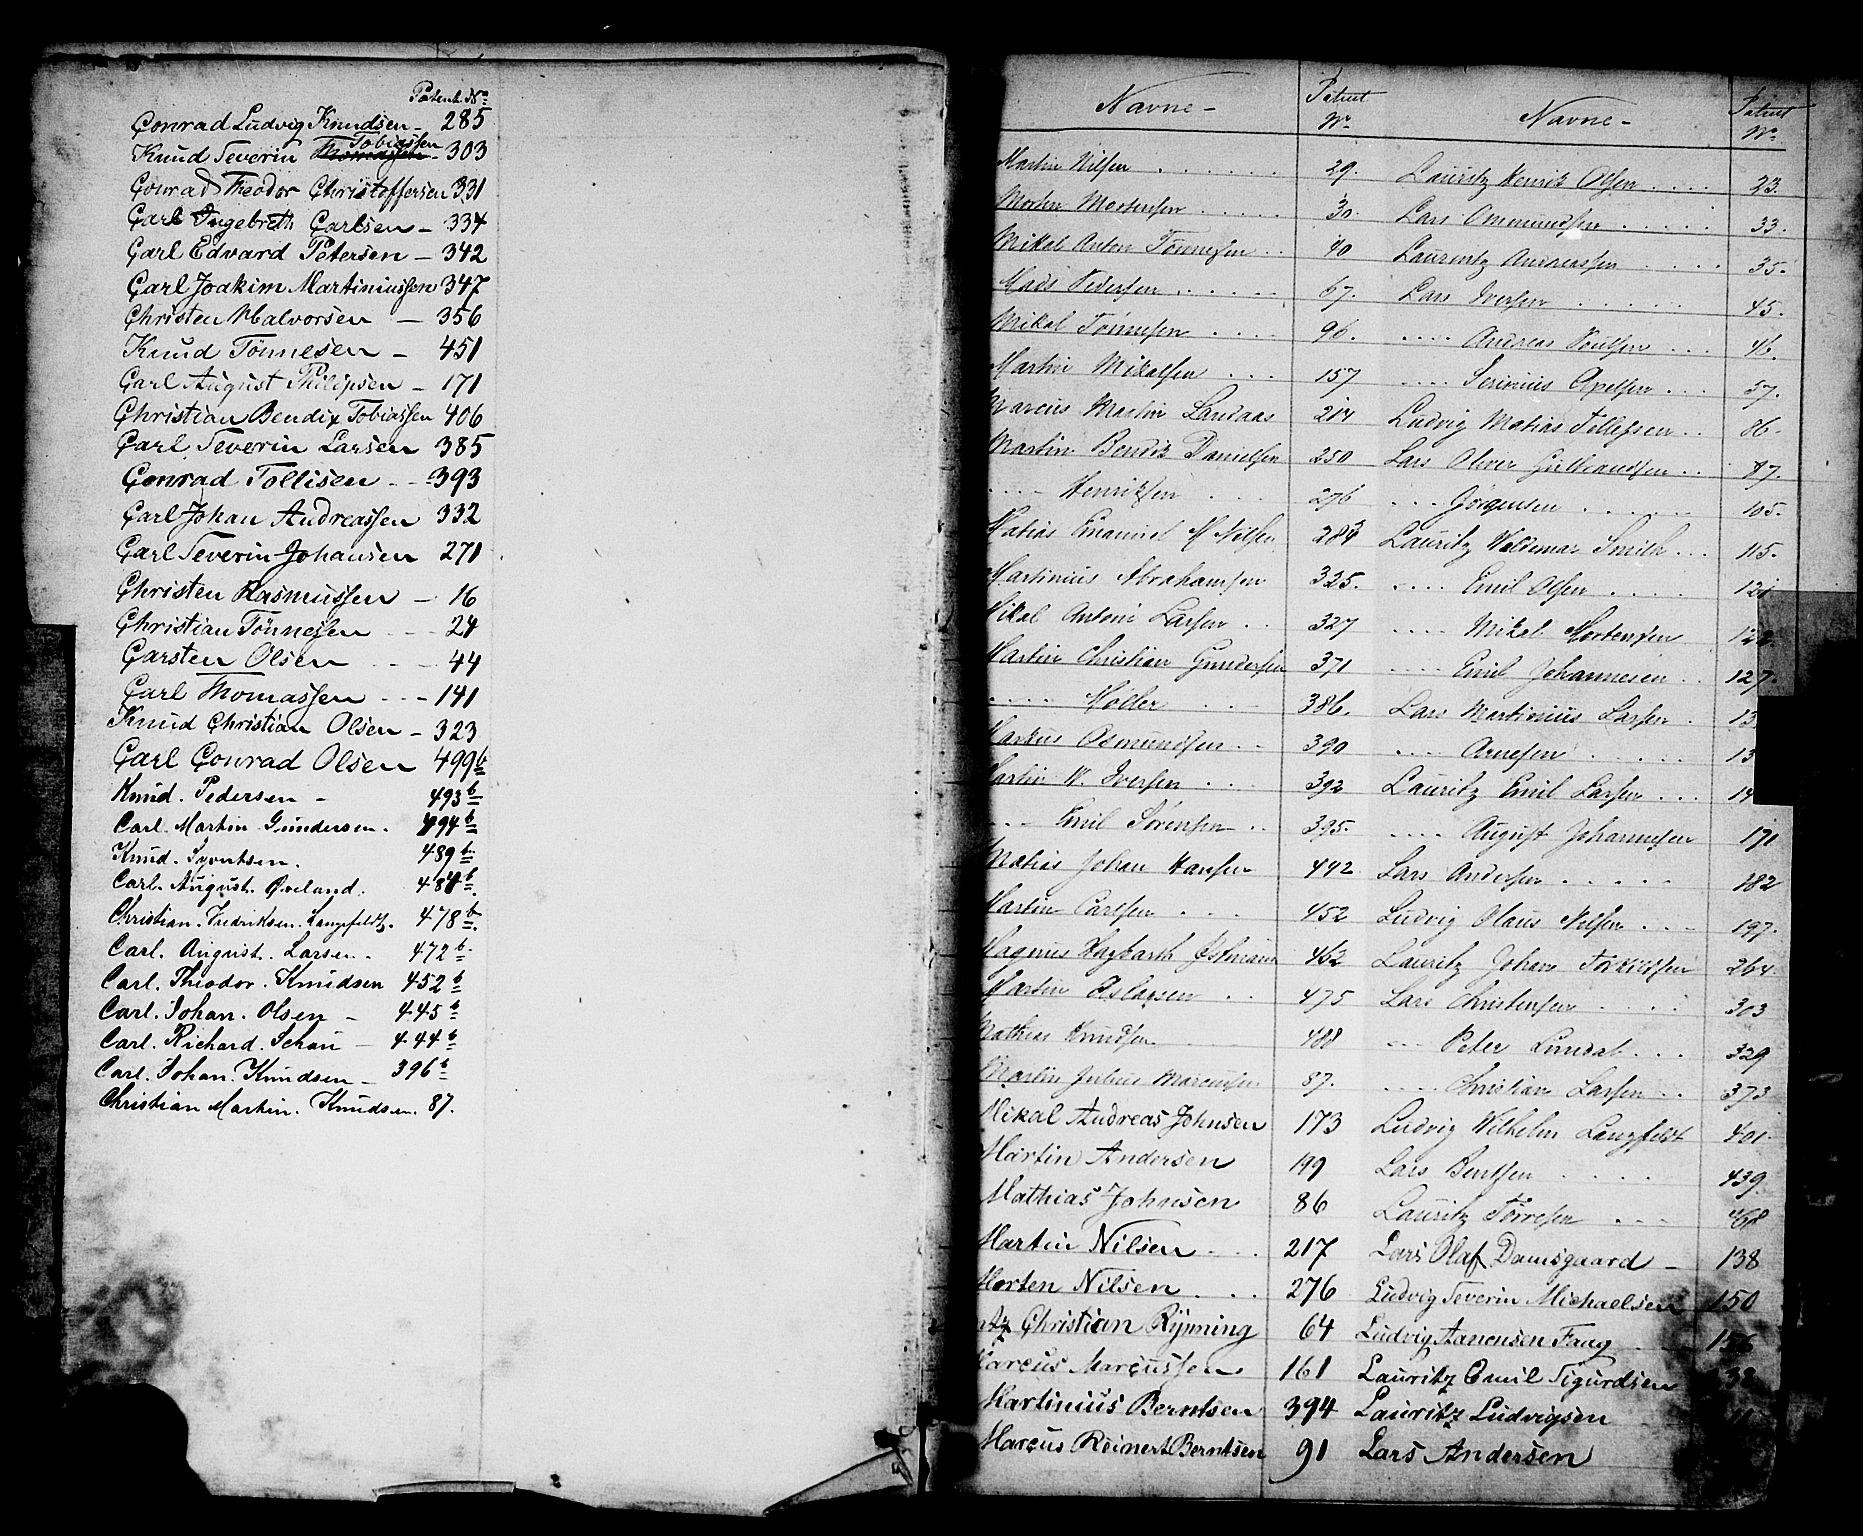 Patent. No.
Conrad Ludvig Knudsen - 285
Knud Severin Thomassen Tobiassen - 303
Conrad Theodor Christoffersen 331
Carl Ingebreth Carlsen - 334
Carl Edvard Petersen - 342
Carl Joakim Martiniussen 347
Christen Halvorsen - 356
Knud Tönnesen - 451
Carl August Philipsen - 171
Christian Bendix Tobiassen 406
Carl Severin Larsen 385
Conrad Tollisen - - 393
Carl Johan Andreassen 332
Carl Severin Johansen 271
Christen Rasmussen - 16
Christian Tönnessen - - - 24
Carsten Olsen - - - 44
Carl Thomassen - - - 141
Knud Christian Olsen - 323
Carl Conrad Olsen 499b
Knud. Pedersen - 493b
Carl. Martin Gundersen. 494b
Knud. Syvertsen. 489b
Carl. August. Øveland. 484b
Christian. Fredriksen. Langfeldt. 478b
Carl. August. Larsen. 472b
Carl. Theodor. Knudsen 452b
Carl. Johan. Olsen - 445b
Carl. Richard. Schau - 444b
Carl. Johan. Knudsen - 396b
Christian Martin. Knudsen. 87.
Navne - Patent No.
Martin Nilsen . . . . . . 29.
Morten Mortensen . . . . . 30.
Mikal Anton Tönnesen . . 40
Mads Pedersen . . . . . 67.
Mikal Tönnesen . . . . 96.
Martin Mikalsen . . . 157
Marcus Martin Landaas 214
Martin Bendik Danielsen 250
. . . . Henriksen . . . 276
Matias Emanuel M Nilsen 284
Martinius Abrahamsen 325.
Mikal Antoni Larsen . . 327
Martin Christian Gundersen 371
. . . . Möller . . . 386.
Markus Osmundsen . . 390
Martin W. Iversen . . . 392
. . . Emil Sörensen . . 395.
Matias Johan Hansen 442
Martin Carlsen . . . 452
Magnus Hagbarth Östmann 462
Martin Aslagsen . . 475
Mathias Knudsen 488
Martin Julius Marcussen 87.
Mikal Andreas Johnsen 173
Martin Andersen 199
Mathias Johnsen 86
Martin Nilsen . . . 217
Morten Nilsen . . . 276
Christian Rynning 64
Marcus Marcussen 161
Martinius Berntsen 394
Marcus Reinert Berntsen 91
Navne - Patent No.
Lauritz Henrik Olsen . . . . 23.
Lars Ommundsen . . . . . 33.
Lauritz Andreassen . . . . 35.
Lars Iversen . . . . . . 45.
. . . . Andreas Poulsen . . . 46.
. . . . Serinius Apelsen . . . 57.
Ludvig Matias Tellefsen . . 86.
Lars Oliver Guldbrandsen . . 87.
. . . Jörgensen . . . . . . 105.
Lauritz Valdemar Smith . . . 115.
. . . . Emil Olsen . . . . 121
. . . . Mikal Mortensen . . 122.
. . . . Emil Johannesen . . 127.
Lars Martinius Larsen . 13
. . . Arnesen . . . . . . 13
Lauritz Emil Larsen . . . 14
. . . . August Johannesen 171
Lars Andersen . . . . . 182
Ludvig Olaus Nilsen . . . 197.
Lauritz Johan Tönnesen 264
Lars Christensen . . . . 303
. . . Peter Lundal . . . 329
. . . . Christian Larsen . . 373
Ludvig Wilhelm Langfeldt 401.
Lars Bentsen . . . . . 439.
Lauritz Torresen . . . 468
Lars Olaf Damsgaard - 138
Ludvig Severin Michaelsen 150
Ludvig Aanensen Faug 156
Lauritz Emil Sigurdsen 38
Lauritz Ludvigsen
Lars Andersen